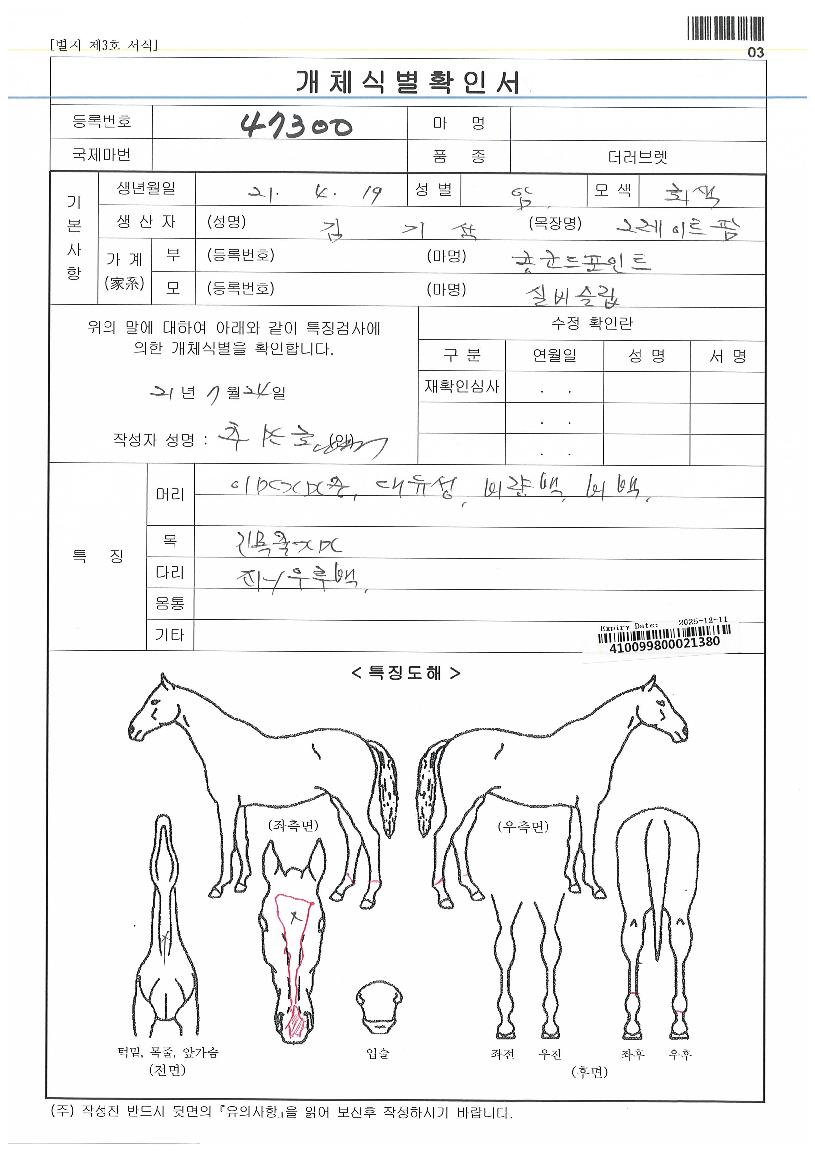 [별지 제3호 서식]
03
개체식별확인서
등록번호 47300 마 명
국제마번 품 종 더러브렛
기본사항
생년월일 21. 4. 19 성별 암 모색 회색
생산자 (성명) 김 기 (목장명) 그레이트팜
가계 (家系) 부 (등록번호) (마명) 포인트
모 (등록번호) (마명) 실버슬립
위의 말에 대하여 아래와 같이 특징검사에
의한 개체식별을 확인합니다.
21년 7월 24일
작성자 성명 : (인)
수정 확인란
구 분 연월일 성 명 서 명
재확인심사 . .
. .
. .
특 징
머리 대유성, 비량백, 비백.
목
다리
몸통
기타
Expiry Date: 2025-12-11
410099800021380
< 특징도해 >
(좌측면) (우측면)
턱밑, 목줄, 앞가슴 입술 좌전 우전 좌후 우후
(전면) (후면)
(주) 작성전 반드시 뒷면의 『유의사항』을 읽어 보신후 작성하시기 바랍니다.